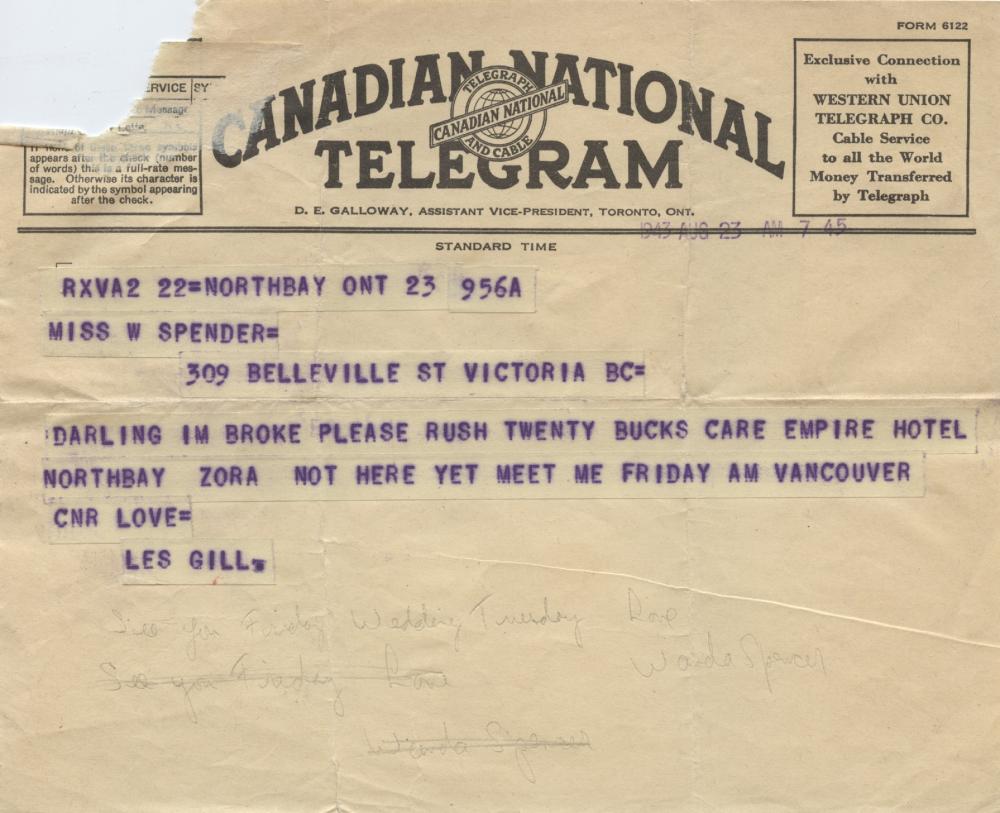 FORM 6122
CANADIAN NATIONAL
TELEGRAM
TELEGRAPH
CANADIAN NATIONAL
AND CABLE
Exclusive Connection
with
WESTERN UNION
TELEGRAPH CO.
Cable Service
to all the World
Money Transferred
by Telegraph
ERVICE SY
Message
If none of these three symbols
appears after the check (number
of words) this is a full-rate mes-
sage. Otherwise its character is
indicated by the symbol appearing
after the check.
D. E. GALLOWAY, ASSISTANT VICE-PRESIDENT, TORONTO, ONT.
1943 AUG 23 AM 7 45
STANDARD TIME
RXVA2 22=NORTHBAY ONT 23 956A
MISS W SPENDER=
309 BELLEVILLE ST VICTORIA BC=
DARLING IM BROKE PLEASE RUSH TWENTY BUCKS CARE EMPIRE HOTEL
NORTHBAY ZORA NOT HERE YET MEET ME FRIDAY AM VANCOUVER
CNR LOVE=
LES GILL
See you Friday Wedding Tuesday Love
Wanda Spencer
See you Friday Love
Wanda Spencer